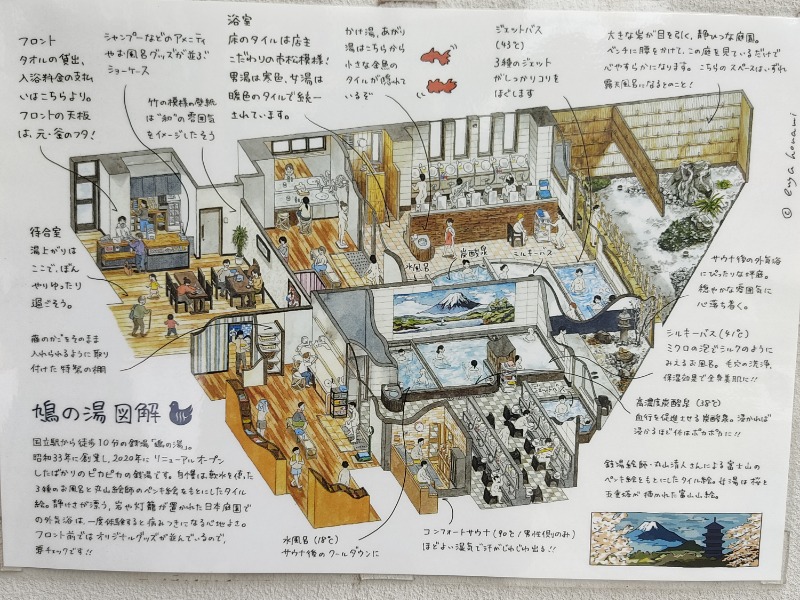 フロント
タオルの貸出、
入浴料金の支払
いはこちらより。
フロントの天板
は、元・釜のフタ!
シャンプーなどのアメニティ
やお風呂グッズが並ぶ
ショーケース
竹の模様の壁紙
は"和"の雰囲気
をイメージしたそう
浴室
床のタイルは店主
こだわりの市松模様!
男湯は寒色、女湯は
暖色のタイルで統一
されています。
かけ湯、あがり
湯はこちらから
小さな金魚の
タイルが隠れて
いるぞ
ジェットバス
(43℃)
3種のジェット
がしっかりコリを
ほぐします
大きな岩が目を引く、静ひつな庭園。
ベンチに腰をかけて、この庭を見ているだけで
心やすらかになります。こちらのスペースはいずれ
露天風呂になるとのこと!
© enya honami
待合室
湯上がりは
ここで、ぼん
やりゆったり
過ごそう。
籐のかごをそのまま
入れられるように取り
付けた特製の棚
水風呂
炭酸泉
シルキーバス
サウナ後の外気浴
にぴったりな坪庭。
穏やかな雰囲気に
心落ち着く。
シルキーバス(41℃)
ミクロの泡でシルクのように
みえるお風呂。毛穴の洗浄、
保湿効果で全身美肌に!!
高濃度炭酸泉(38℃)
血行を促進させる炭酸泉。浸かれば
浸かるほど体はポカポカに!!
銭湯絵師・丸山清人さんによる富士山の
ペンキ絵をもとにしたタイル絵。女湯は桜と
五重塔が描かれた富士山絵。
鳩の湯図解
国立駅から徒歩10分の銭湯「鳩の湯」。
昭和33年に創業し、2020年にリニューアルオープン
したばかりのピカピカの銭湯です。自慢は軟水を使った
3種のお風呂と丸山絵師のペンキ絵をもとにしたタイル
絵。静けさが漂う、岩や灯籠が置かれた日本庭園で
の外気浴は、一度体験すると病みつきになる心地よさ。
フロント前ではオリジナルグッズが並んでいるので、
要チェックです!!
水風呂(18℃)
サウナ後のクールダウンに
コンフォートサウナ(90℃/男性側のみ)
ほどよい湿気で汗がじわじわ出る!!